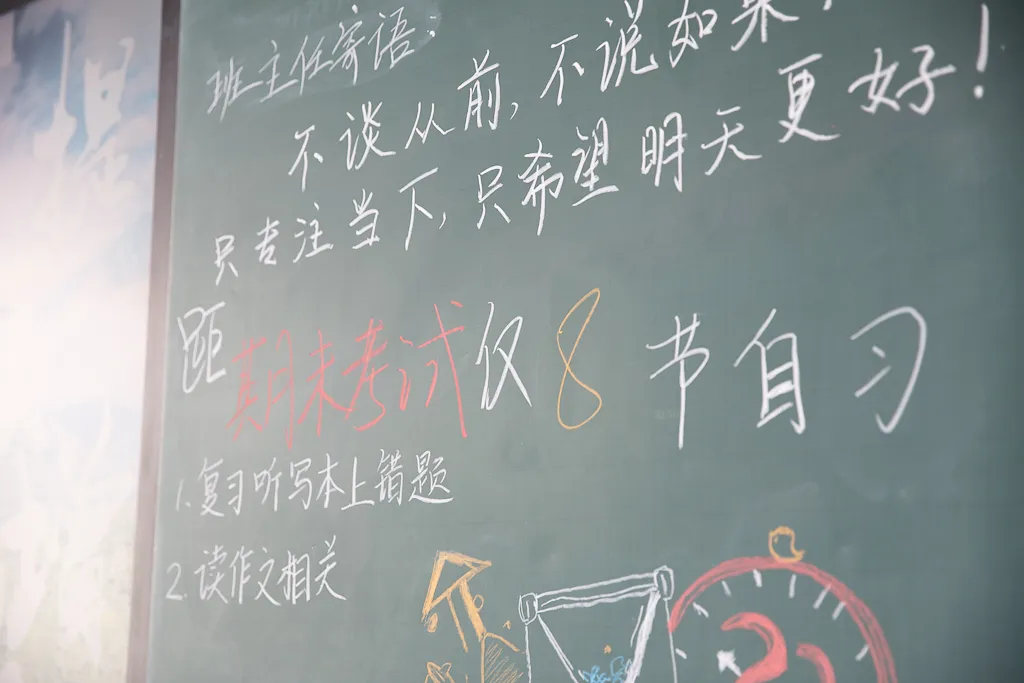 班主任寄语：
不谈从前，不说如果，
只专注当下，只希望明天更好！
距期末考试仅8节自习
1.复习听写本上错题
2.读作文相关